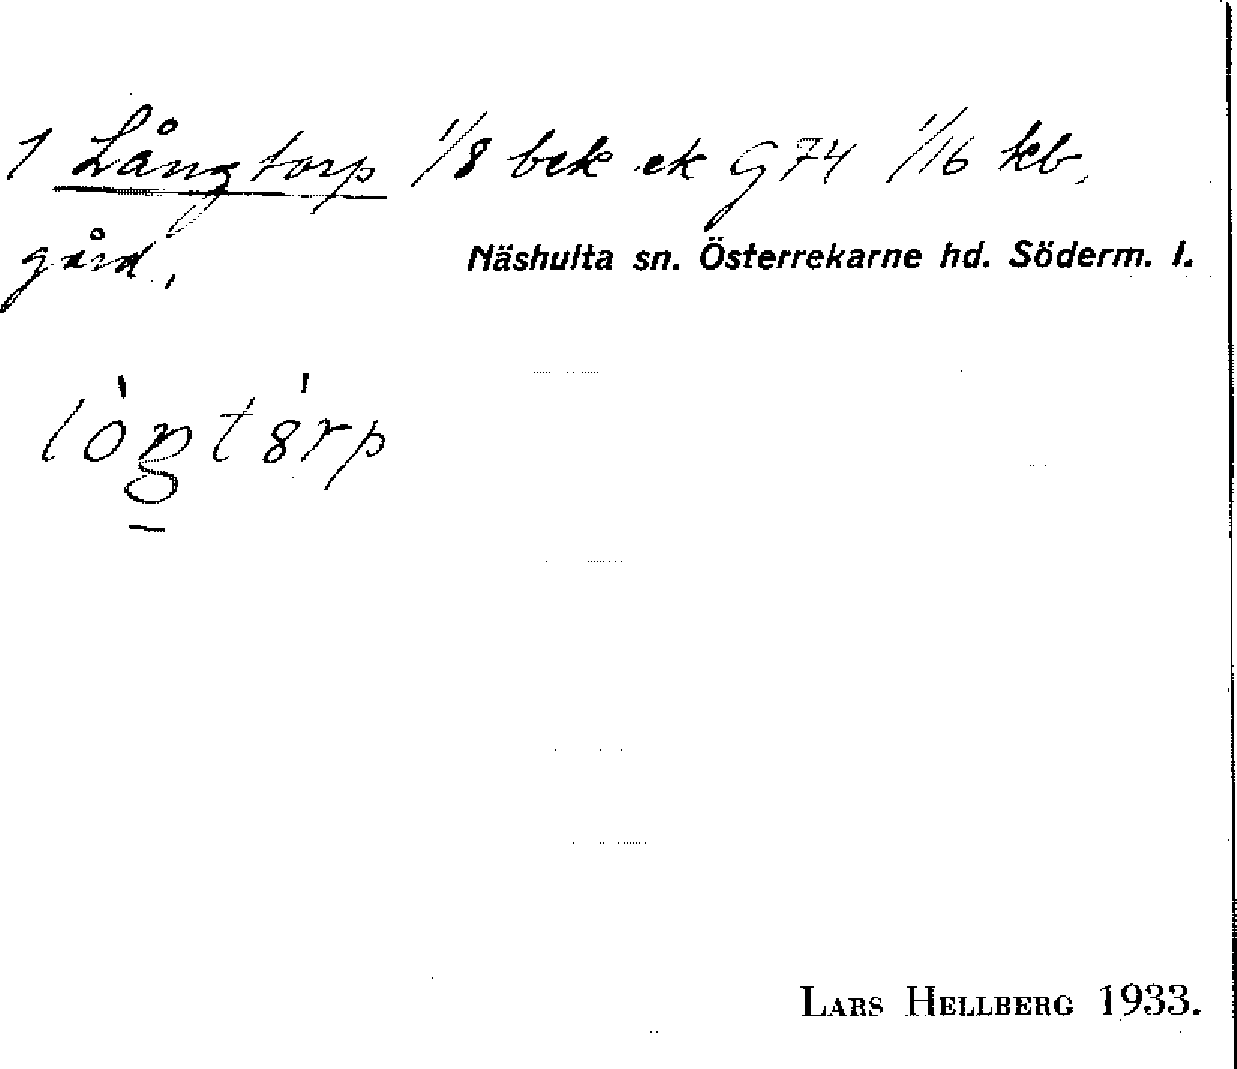 1 Långtorp 1/8 bek ek G74 1/16 kb.
gård,
Näshulta sn. Österrekarne hd. Söderm. l.
LARS HELLBERG 1933.